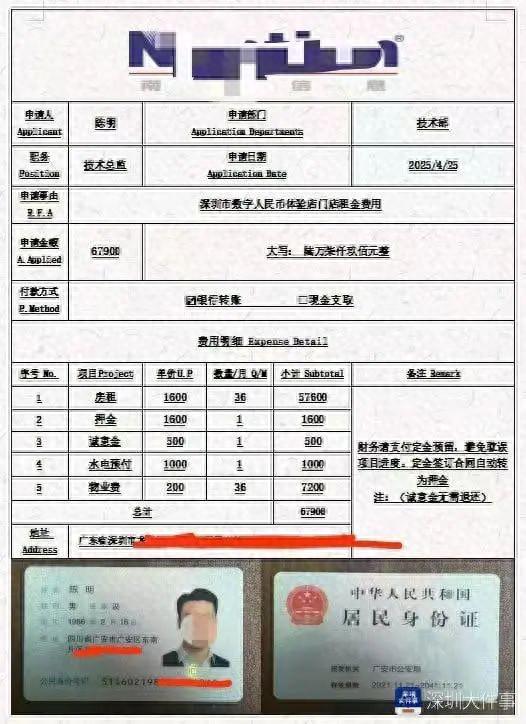 申请人 陈明 申请部门 技术部
Applicant Application Departments
职务 技术总监 申请日期 2025/4/25
Position Application Date
申请事由 深圳市数字人民币体验店门店租金费用
R.F.A
申请金额 67900 大写：陆万柒仟玖佰元整
A.Applied
付款方式 ☑银行转账 □现金支取
P.Method
费用明细 Expense Detail
序号 No. 项目Project 单价U.P 数量/月 Q/M 小计 Subtotal 备注 Remark
1 房租 1600 36 57600
2 押金 1600 1 1600
3 诚意金 500 1 500
4 水电预付 1000 1 1000
5 物业费 200 36 7200
总计 67900
财务请支付定金预留，避免耽误
项目进度。定金签订合同自动转
为押金
注：（诚意金无需退还）
地址 广东省深圳市
Address
姓名 陈明
男 汉
1986 2 16
住址 四川省广安市广安区东南
公民身份号码 511602198
中华人民共和国
居民身份证
签发机关 广安市公安局
有效期限
深圳大件事
深圳大件事